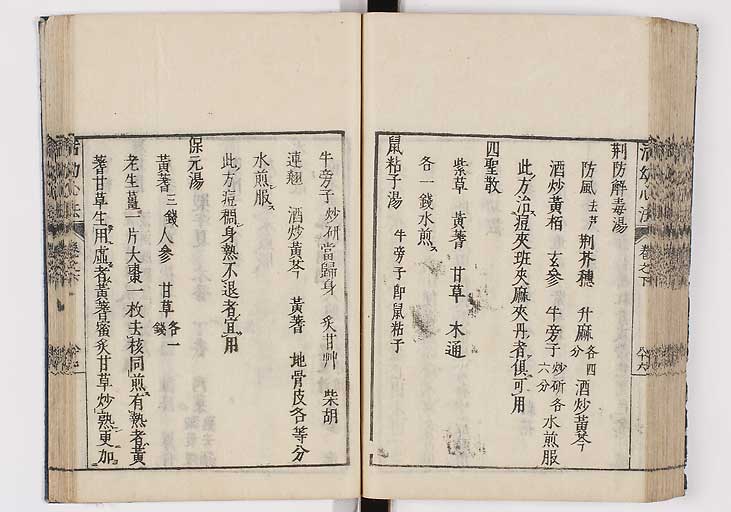 活幼心法
卷之下
八十六
荆防解毒湯
防風去芦 荆芥穗 升麻各四分 酒炒黃芩
酒炒黃栢 玄參 牛旁子炒研各六分 水煎服
此方治痘夾班夾麻夾丹者俱可用
四聖散
紫草 黃蓍 甘草 木通
各一錢水煎
鼠粘子湯 牛旁子卽鼠粘子
牛旁子炒研 當歸身 炙甘艸 柴胡
連翹 酒炒黃芩 黃蓍 地骨皮各等分
水煎服
此方痘稠身熱不退者宜用
保元湯
黃蓍三錢 人參 甘草各一錢
老生薑一片大棗一枚去核同煎有熱者黃
蓍甘草生用虛者黃蓍蜜炙甘草炒熟更加
活幼心法
卷之下